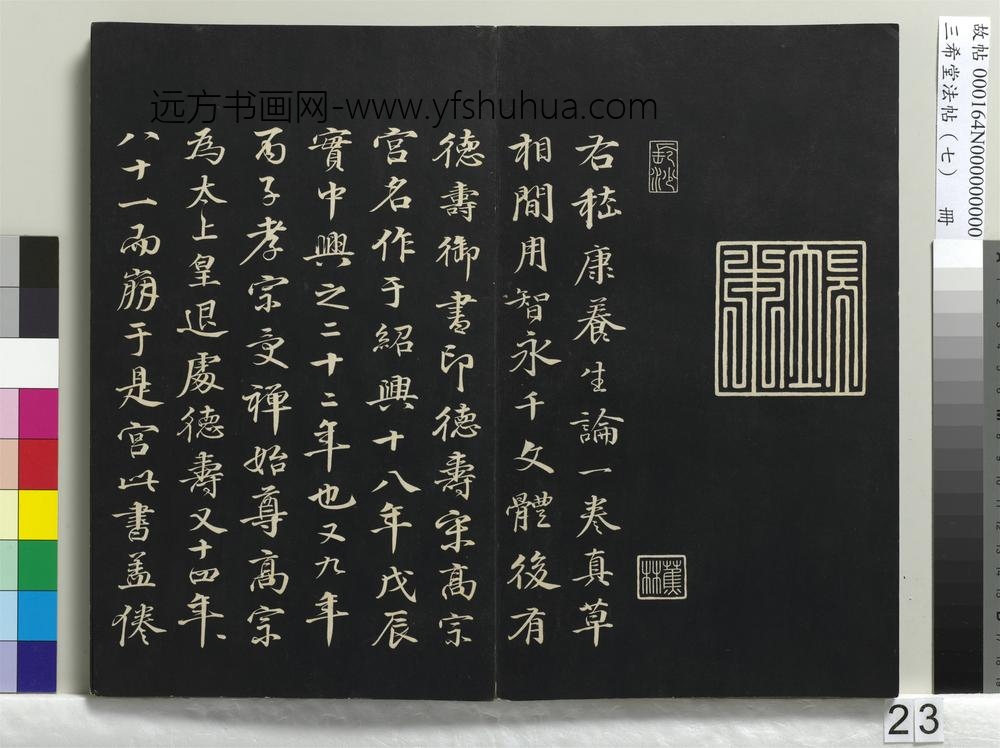 右嵇康養生論一卷真草
相間用智永千文體後有
德壽御書印德壽宋高宗
宮名作于紹興十八年戊辰
實中興之二十二年也又九年
丙子孝宗受禪始尊高宗
為太上皇退處德壽又十四年
八十一而崩于是宮此書蓋倦
长沙
蕉林
远方书画网-www.yfshuhua.com
故帖000164N000000000
三希堂法帖(七) 冊
23